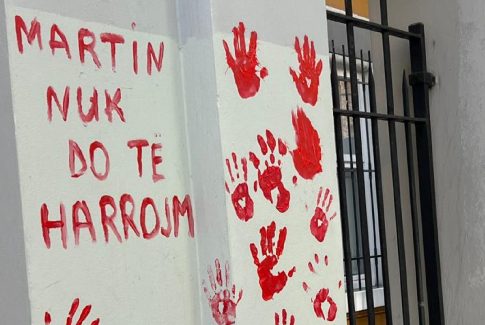 MARTIN
NUK
DO TË
HARROJM